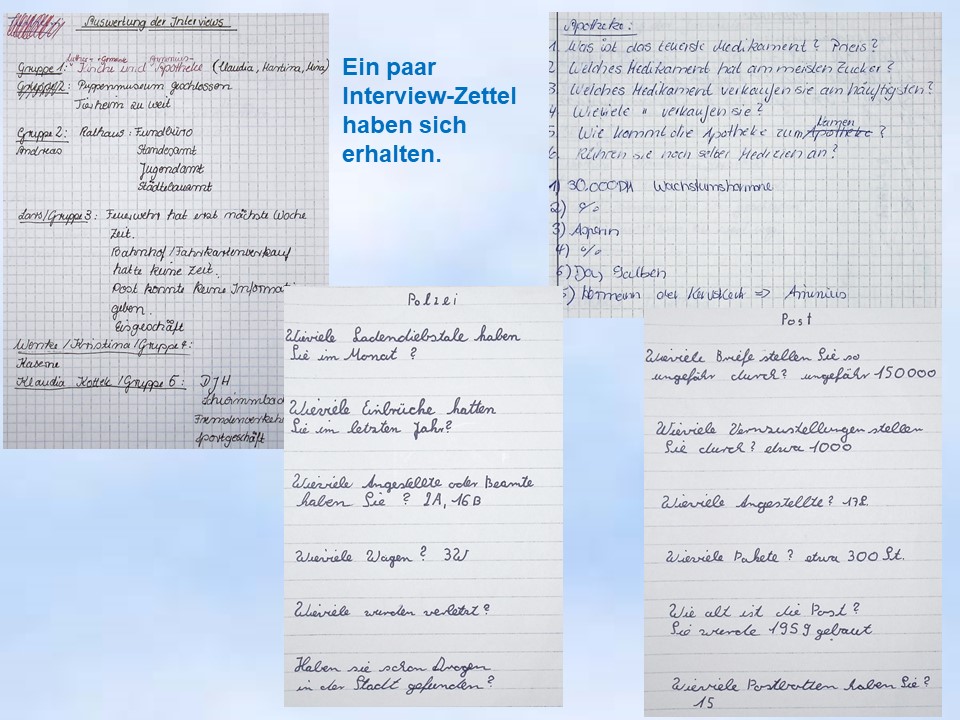 Auswertung der Interviews
Luther-Gemeine Arminius-
Gruppe 1: Kirche und Apotheke (Claudia, Martina, Nina)
Gruppe 2: Puppenmuseum geschlossen
Tierheim zu weit
Gruppe 2: Rathaus: Fundbüro
Andreas Standesamt
Jugendamt
Städtebauamt
Lars/Gruppe 3: Feuerwehr hat erst nächste Woche
Zeit.
Bahnhof/Fahrkartenverkauf
hatte keine Zeit.
Post konnte keine Informati
geben.
Eisgeschäft
/Kristina/Gruppe 4:
Kaserne
Klaudia Kottek/Gruppe 5: DJH
Schwimmbad
Fremdenverkeh
Sportgeschäft
Ein paar
Interview-Zettel
haben sich
erhalten.
Apotheke:
1. Was ist das teuerste Medikament? Preis?
2. Welches Medikament hat am meisten Zucker?
3. Welches Medikament verkaufen sie am häufigsten?
4. Wieviele " verkaufen sie?
5. Wie kommt die Apotheke zum Apotheke Namen?
6. Rühren sie noch selber Medizien an?
1) 30.000DM Wachstumshormone
2) %
3) Aspirin
4) %
6) Day Salben
5) Hermann oder Keruskerk => Arminius
Polzei
Wieviele Ladendiebstale haben
Sie im Monat?
Wieviele Einbrüche hatten
Sie im letzten Jahr?
Wieviele Angestellte oder Beamte
haben Sie? 2A, 16B
Wieviele Wagen? 3W
Wieviele wurden verletzt?
Haben sie schon Drogen
in der Stadt gefunden?
Post
Wieviele Briefe stellen Sie so
ungefähr durch? ungefähr 150000
Wieviele Vernzustellungen stellen
Sie durch? etwa 1000
Wieviele Angestellte? 172.
Wieviele Pakete? etwa 300 St.
Wie alt ist die Post?
Sie wurde 1959 gebaut
Wieviele Postbotten haben Sie?
15